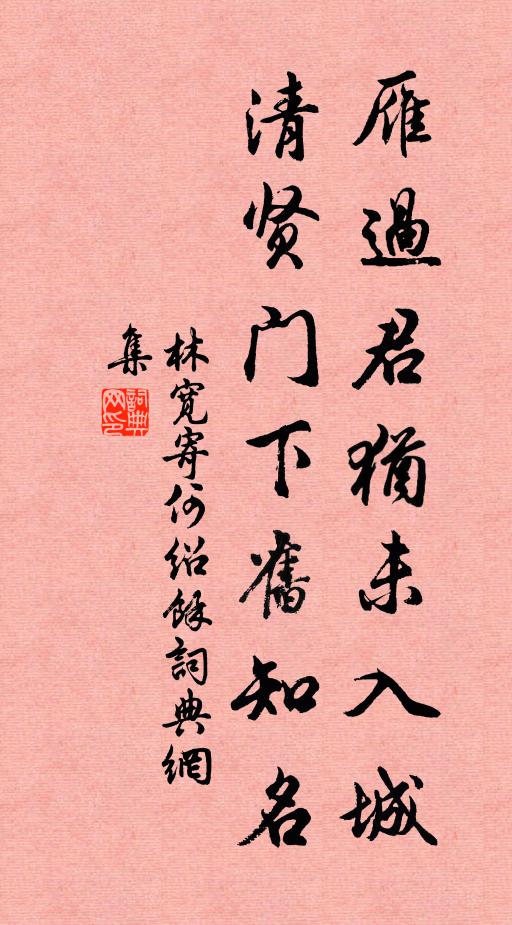 雁過君猶未入城
清贤门下舊知名
林寬寄何绍餘詞典網
集
詞典
网印